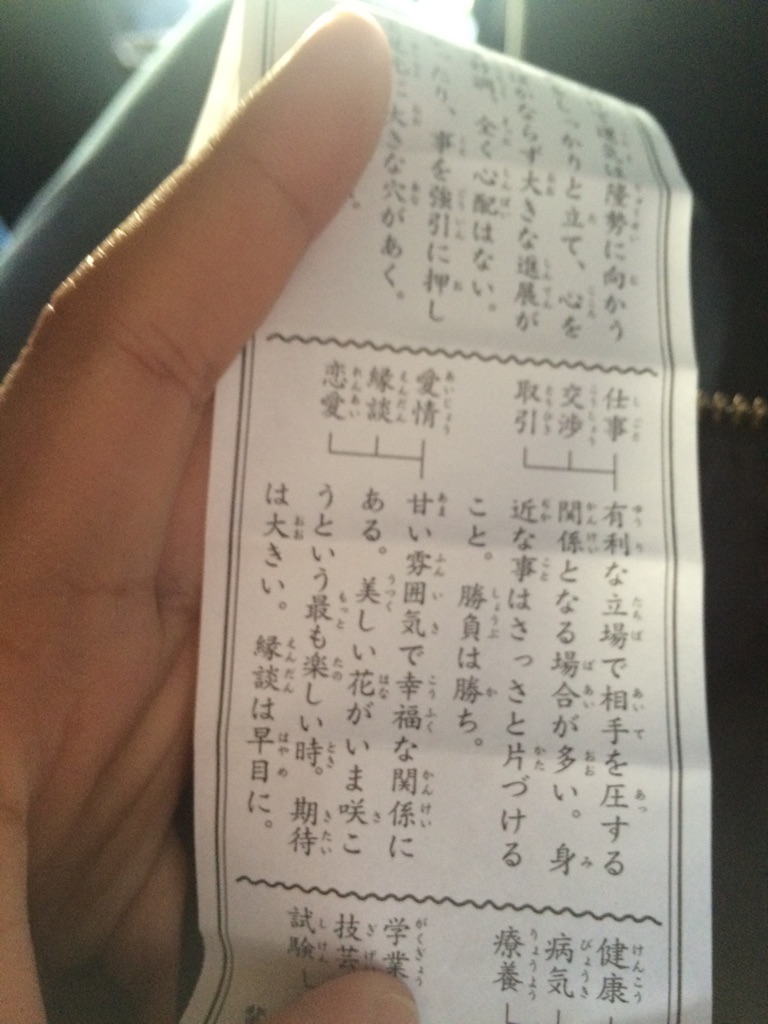 は隆勢に向かう
しっかりと立て、心を
かならず大きな進展が
全く心配はない。
たり、事を強引に押し
大きな穴があく。
仕事
交渉
取引
有利な立場で相手を圧する
関係となる場合が多い。身
近な事はさっさと片づける
こと。勝負は勝ち。
愛情
縁談
恋愛
甘い雰囲気で幸福な関係に
ある。美しい花がいま咲こ
うという最も楽しい時。期待
は大きい。縁談は早目に。
健康
病気
療養
学業
技芸
試験